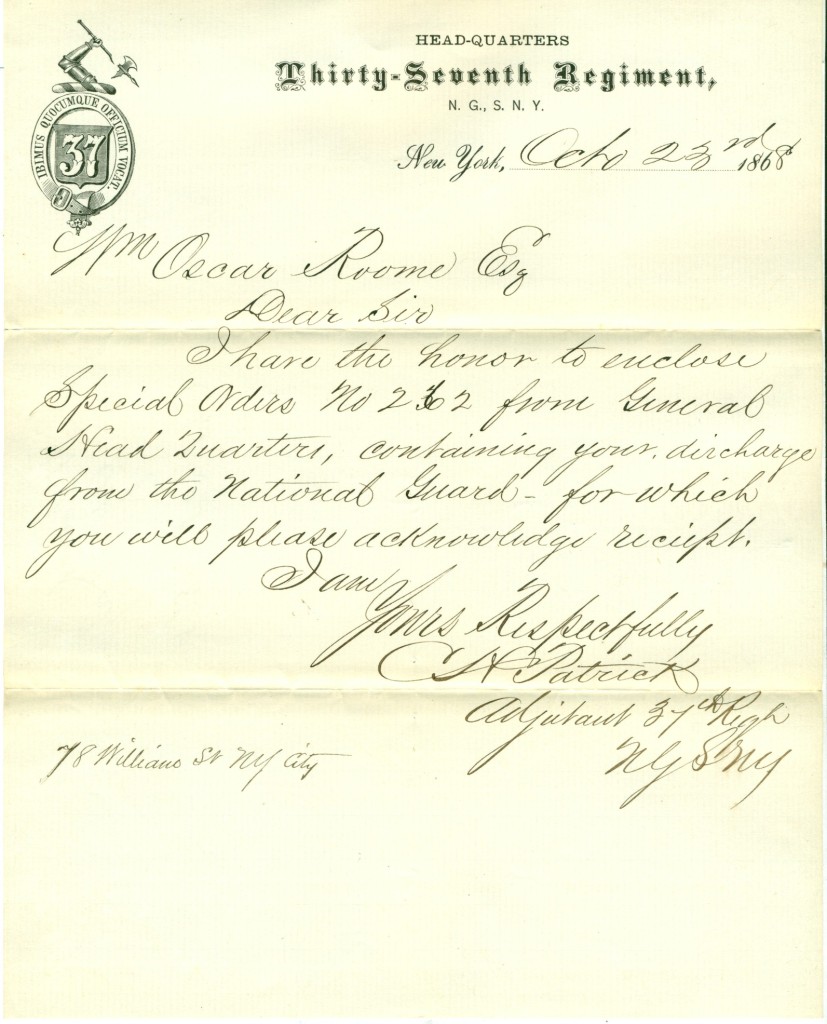 HEAD-QUARTERS
Thirty-Seventh Regiment,
N. G., S. N. Y.
IBIMUS QUOCUMQUE OFFICIUM VOCAT.
37
New York, Octo 23rd 1868
Wm Oscar Roome Esq
Dear Sir
I have the honor to enclose
Special Orders No 262 from General
Head Quarters, containing your discharge
from the National Guard - for which
you will please acknowledge reciept.
I am
Yours Respectfully
C H Patrick
Adjutant 37th Regt
NGSNY
78 William St NY City